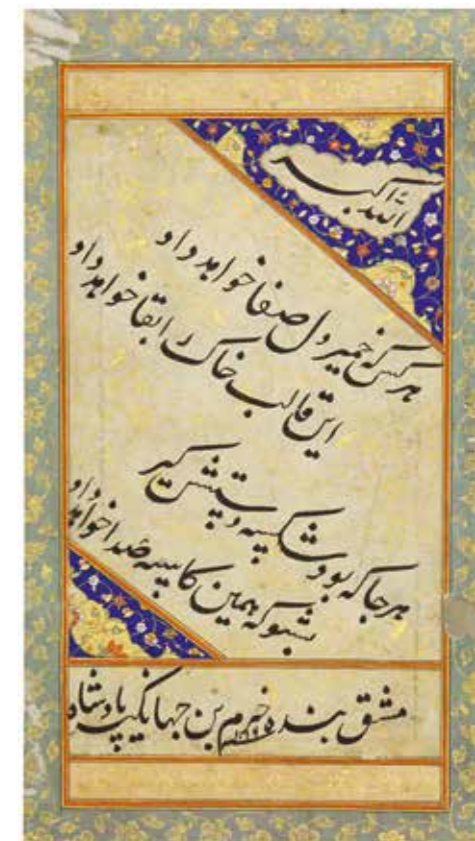 الله اکبر
هر کس که خمیر دل صفا خواهد داد
این قالب خاک را بقا خواهد داد
هر جا که بود شکسته دستش گیر
بشنو که همین کاسه صدا خواهد داد
مشق بنده خرم بن جهانگیر پادشاه